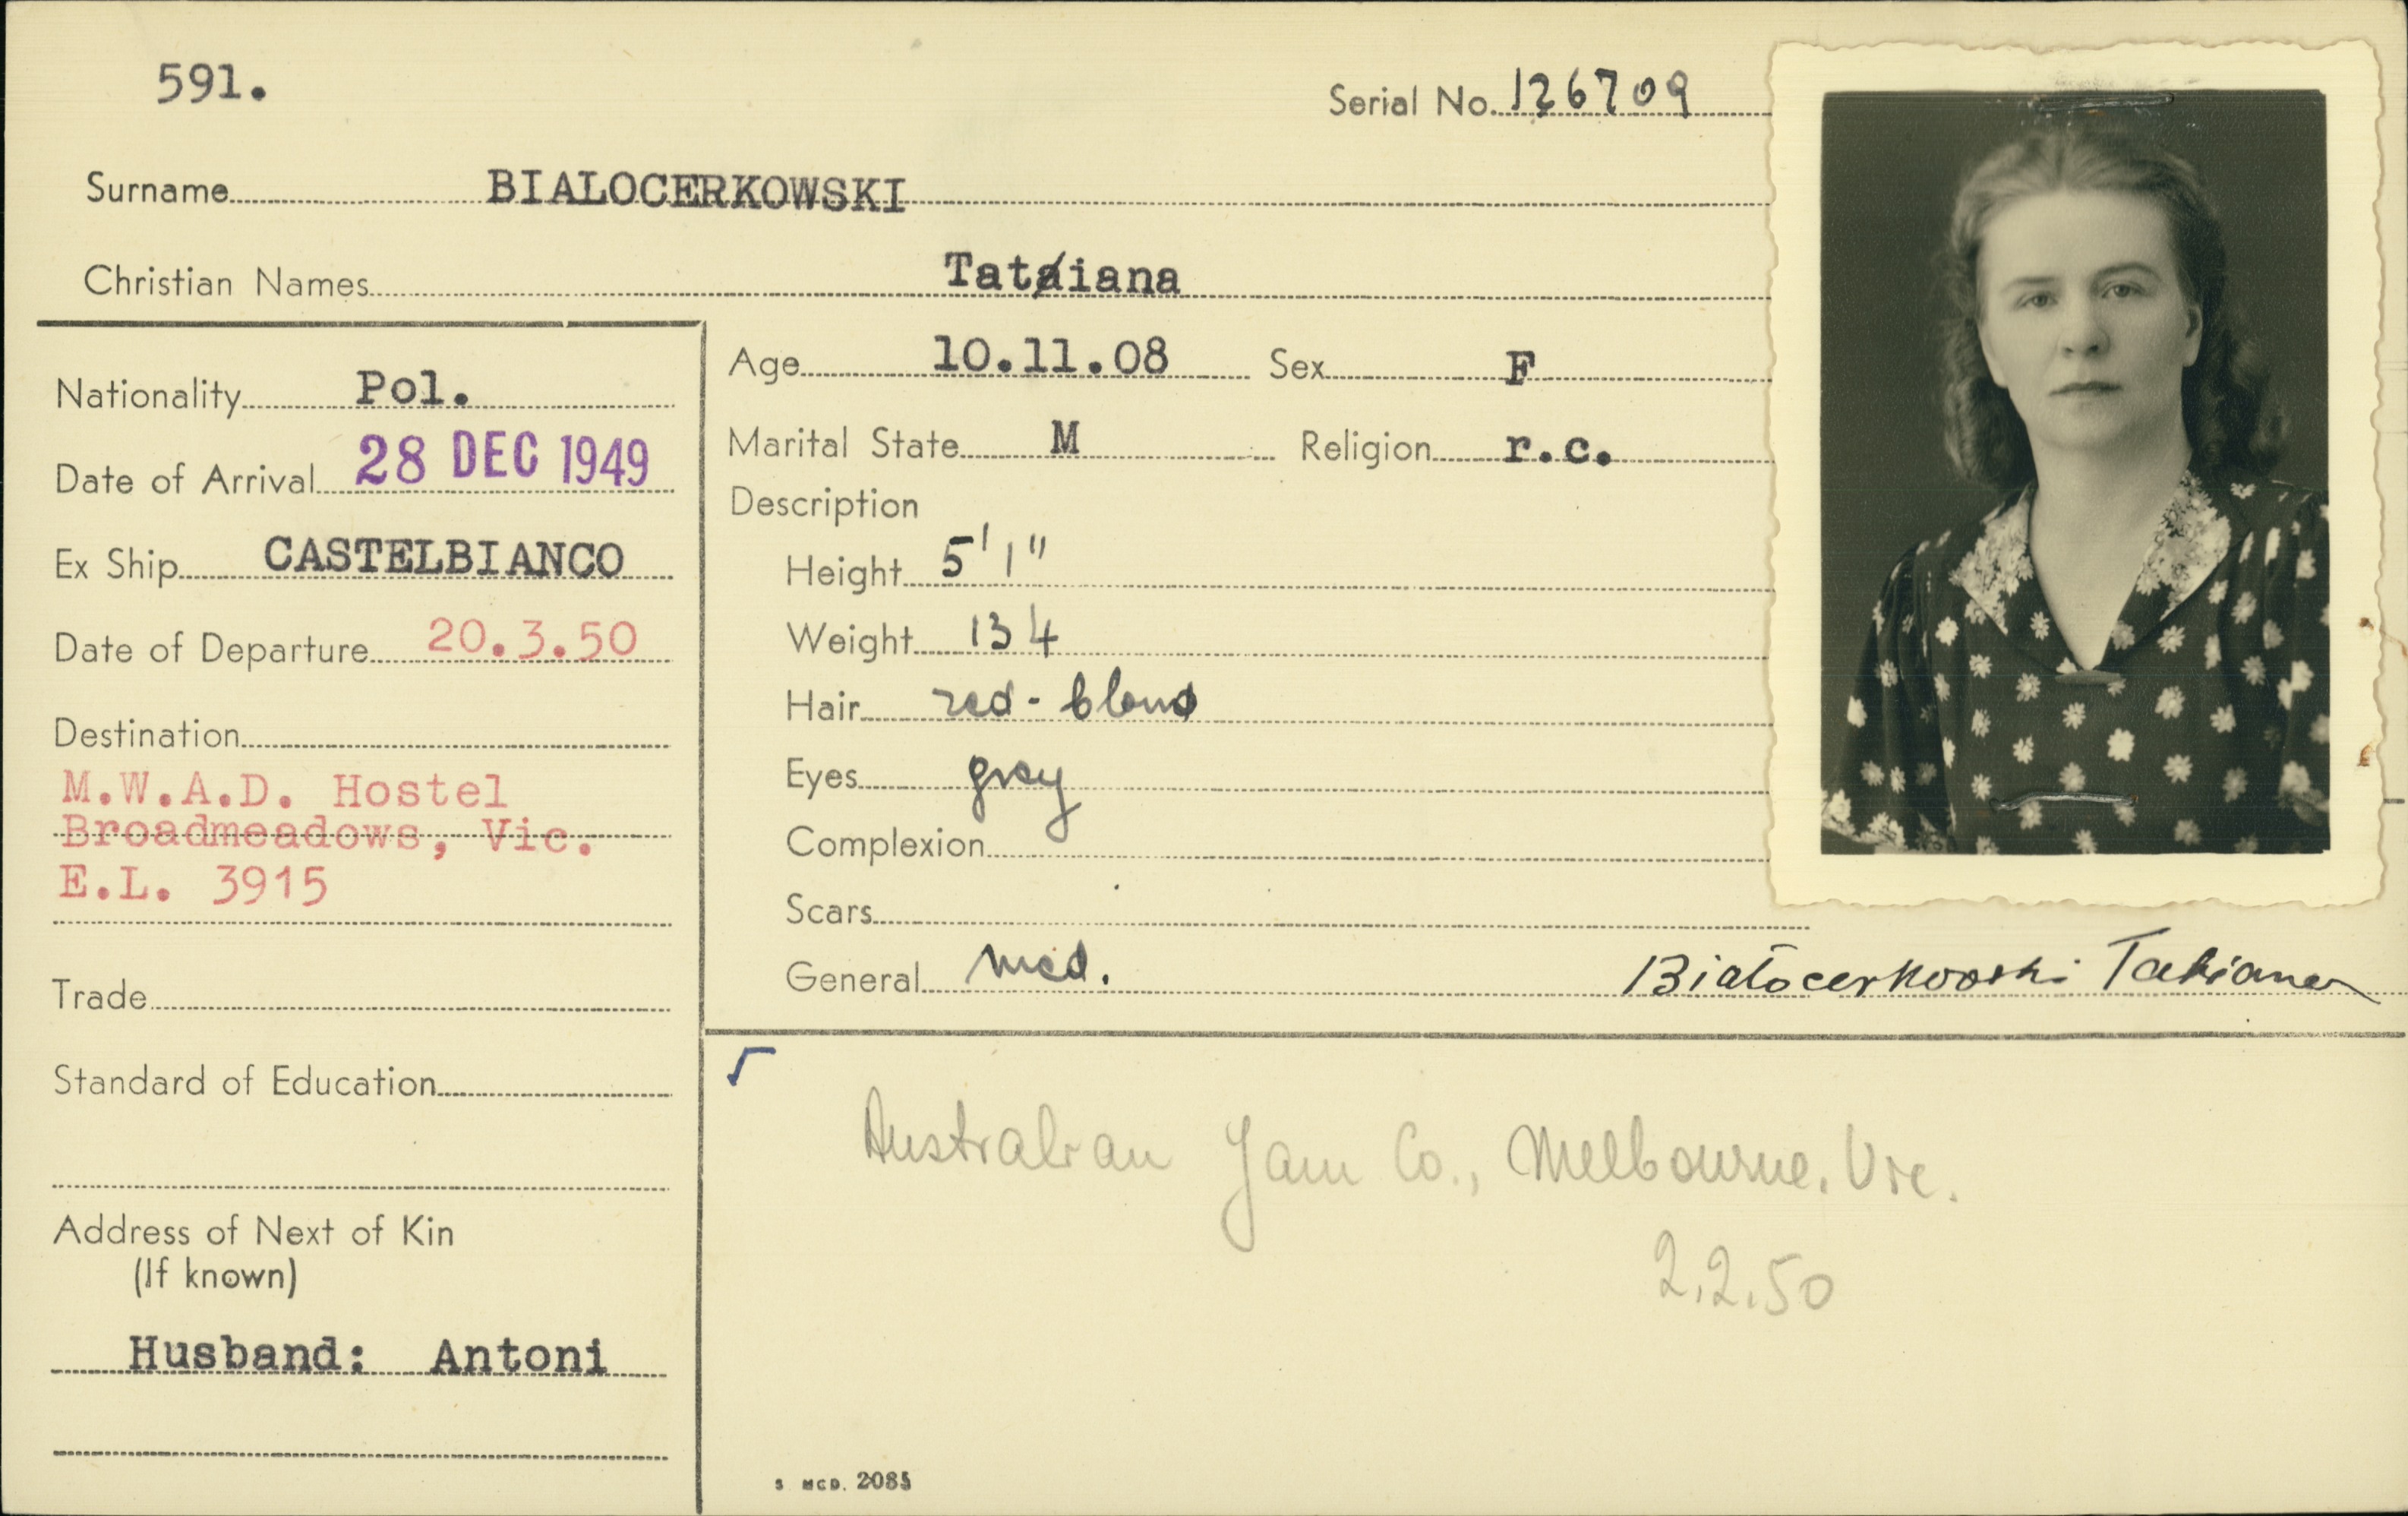 591.
Serial No. 126709
Surname BIALOCERKOWSKI
Christian Names Tataiana
Nationality Pol.
Date of Arrival 28 DEC 1949
Ex Ship CASTELBIANCO
Date of Departure 20.3.50
Destination
M.W.A.D. Hostel
Broadmeadows, Vic.
E.L. 3915
Trade
Standard of Education
Address of Next of Kin
(If known)
Husband: Antoni
Age 10.11.08 Sex F
Marital State M Religion r.c.
Description
Height 5'1"
Weight 134
Hair red-blond
Eyes grey
Complexion
Scars
General med.
Białocerkowski Tatiana
Australian Jam Co., Melbourne. Vic.
2.2.50
S MCD. 2085